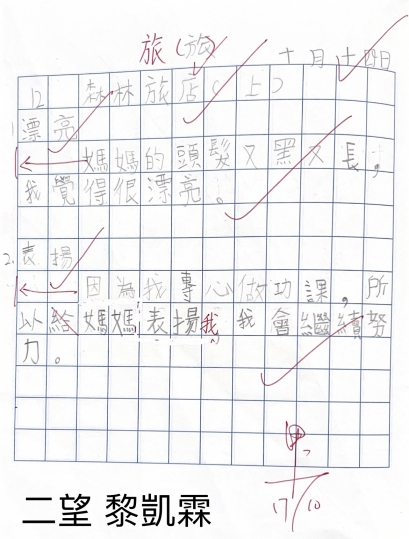 旅(旅)
十月十四日
12 森林旅店(上)
1. 漂亮
媽媽的頭髮又黑又長,
我覺得很漂亮。
2. 表揚
因為我專心做功課,所
以給媽媽表揚我,我會繼續努
力。
17/10
二望 黎凱霖